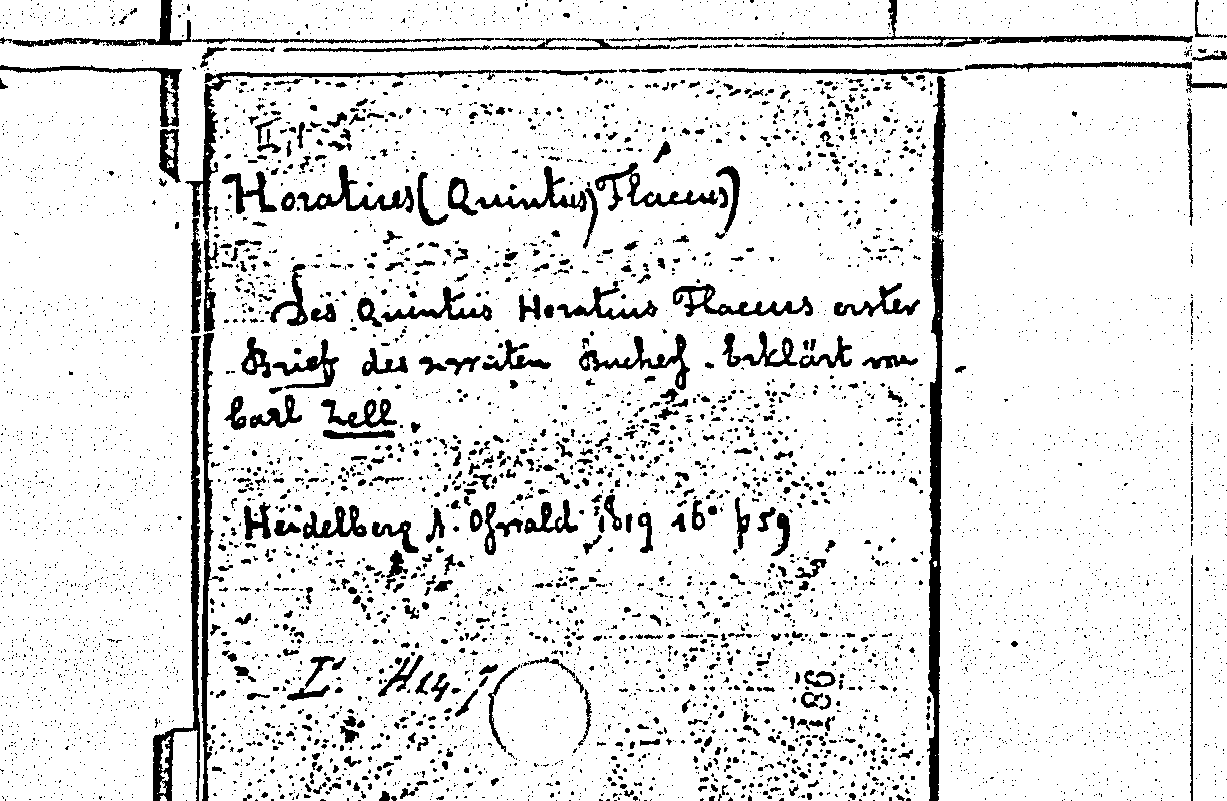 II,1
Horatius (Quintus) Flaccus)
Des Quintus Horatius Flaccus erster
Brief des zweiten Buches. Erklärt von
Carl Zell.
Heidelberg A. Oswald 1819 16° p 59
186